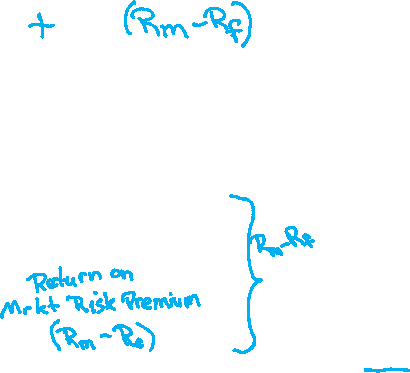 + (Rm-Rf)
Rm-Rf
Return on
Mrkt Risk Premium
(Rm-Rf)